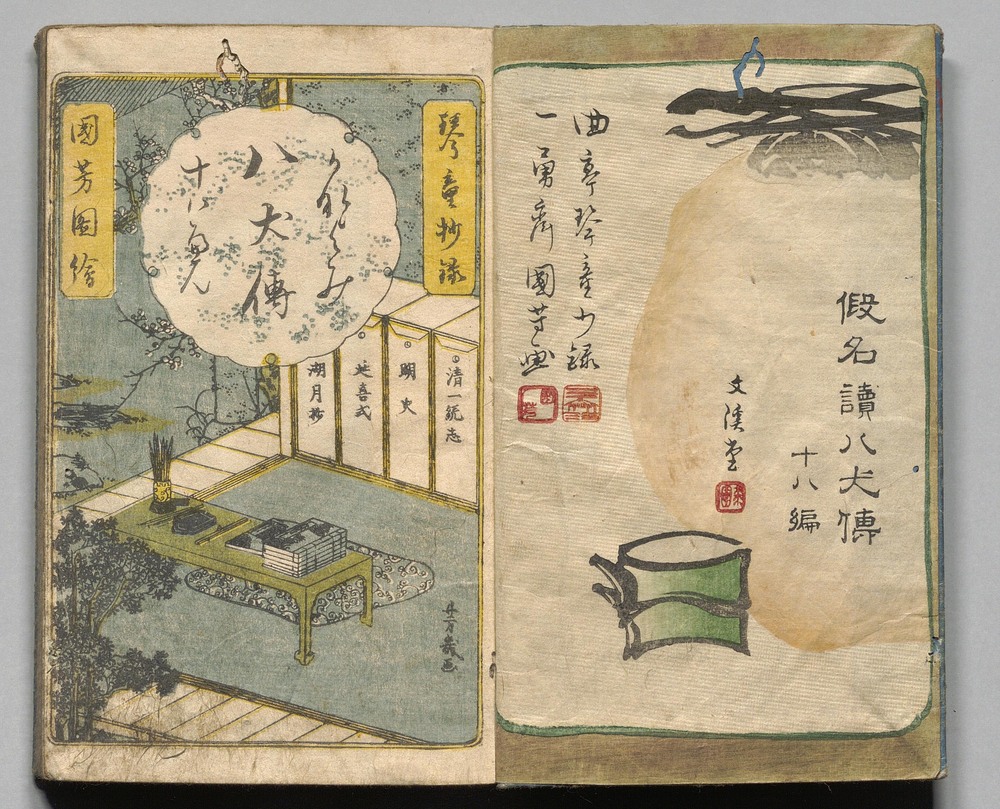 假名讀八犬傳
十八編
文溪堂
曲亭琴童少録
一勇齋國芳画
琴童抄録
かなよみ
八犬傳
十八へん
國芳圖繪
清一統志
明史
延喜式
湖月抄
芳幾画